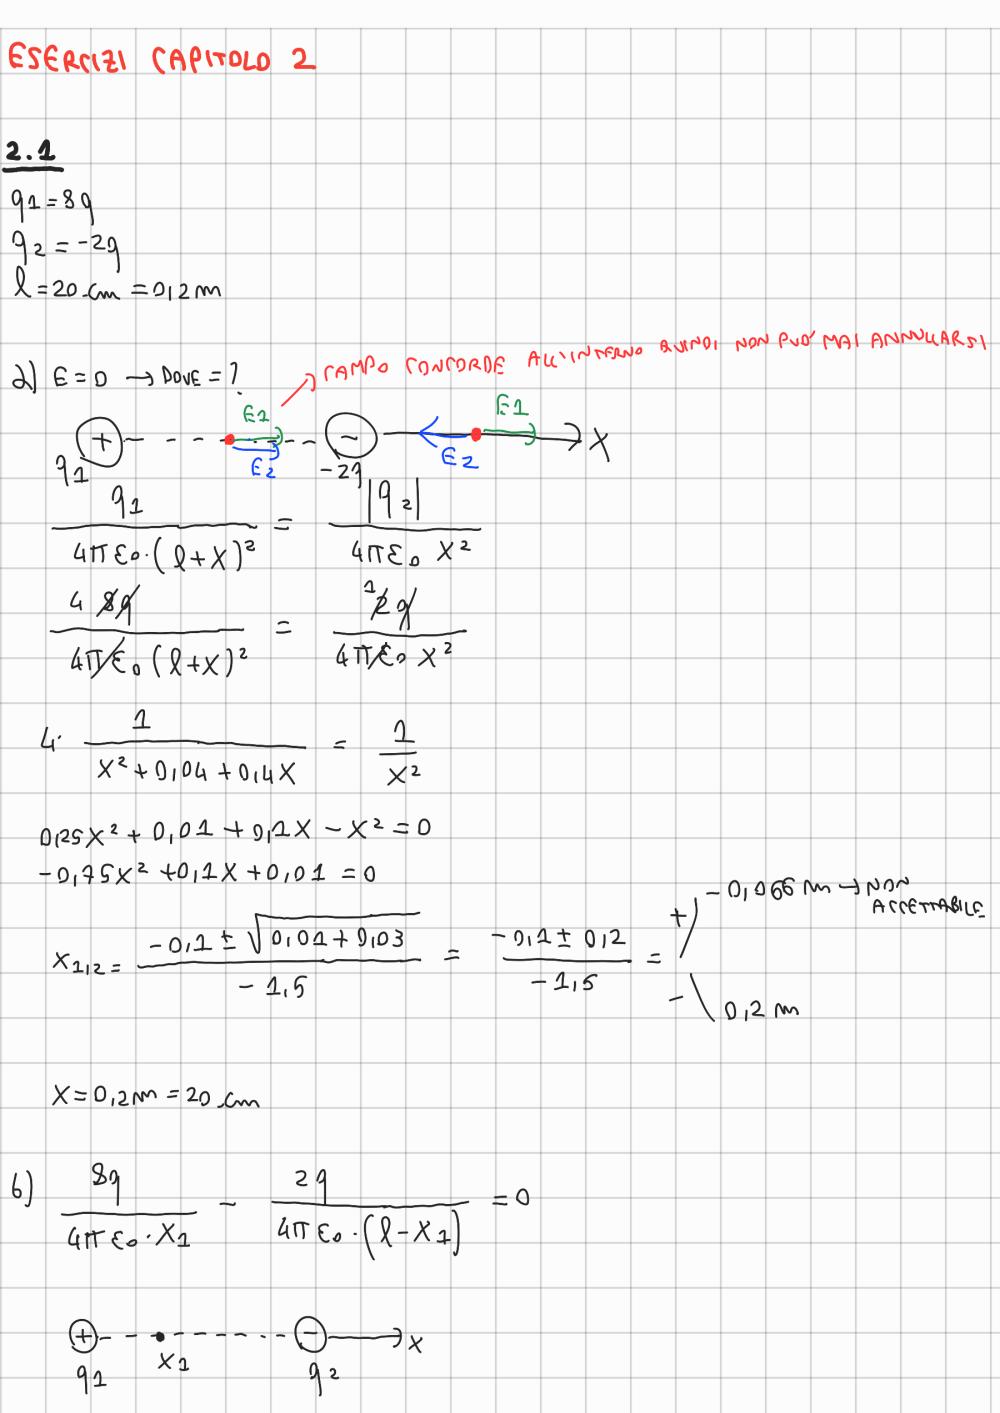 ESERCIZI CAPITOLO 2
2.1
q1 = 8q
q2 = -2q
l = 20 cm = 0,2 m
CAMPO CONCORDE ALL'INTERNO QUINDI NON PUO' MAI ANNULLARSI
a) E = 0 → DOVE = ?
E1 E1
+ - X
q1 E2 -2q E2
q1 / (4πε0·(l+x)²) = |q2| / (4πε0 x²)
4 8q / (4πε0 (l+x)²) = 1 2q / (4πε0 x²)
4· 1 / (x² + 0,04 + 0,4x) = 1 / x²
0,25x² + 0,01 + 0,1x - x² = 0
-0,75x² + 0,1x + 0,01 = 0
x1,2 = (-0,1 ± √(0,01 + 0,03)) / -1,5 = (-0,1 ± 0,2) / -1,5 =
+ -0,066 m → NON ACCETTABILE
- 0,2 m
x = 0,2 m = 20 cm
b) 8q / (4πε0·x1) - 2q / (4πε0·(l-x1)) = 0
+ - x
q1 x1 q2